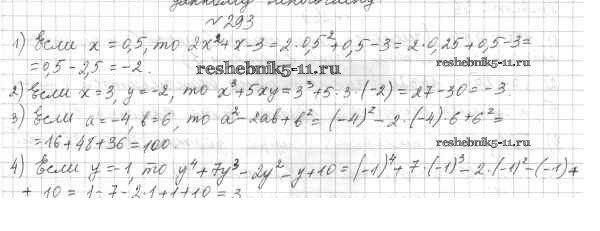 данному многочлену
№293
1) Если x = 0,5, то 2x²+x-3=2·0,5²+0,5-3=2·0,25+0,5-3=
=0,5-2,5=-2.
reshebnik5-11.ru
2) Если x=3, y=-2, то x³+5xy=3³+5·3·(-2)=27-30=-3.
3) Если a=-4, b=6, то a²-2ab+b²=(-4)²-2·(-4)·6+6²=
=16+48+36=100.
reshebnik5-11.ru
4) Если y=-1, то y⁴+7y³-2y²-y+10=(-1)⁴+7·(-1)³-2·(-1)²-(-1)+
+10=1-7-2·1+1+10=3